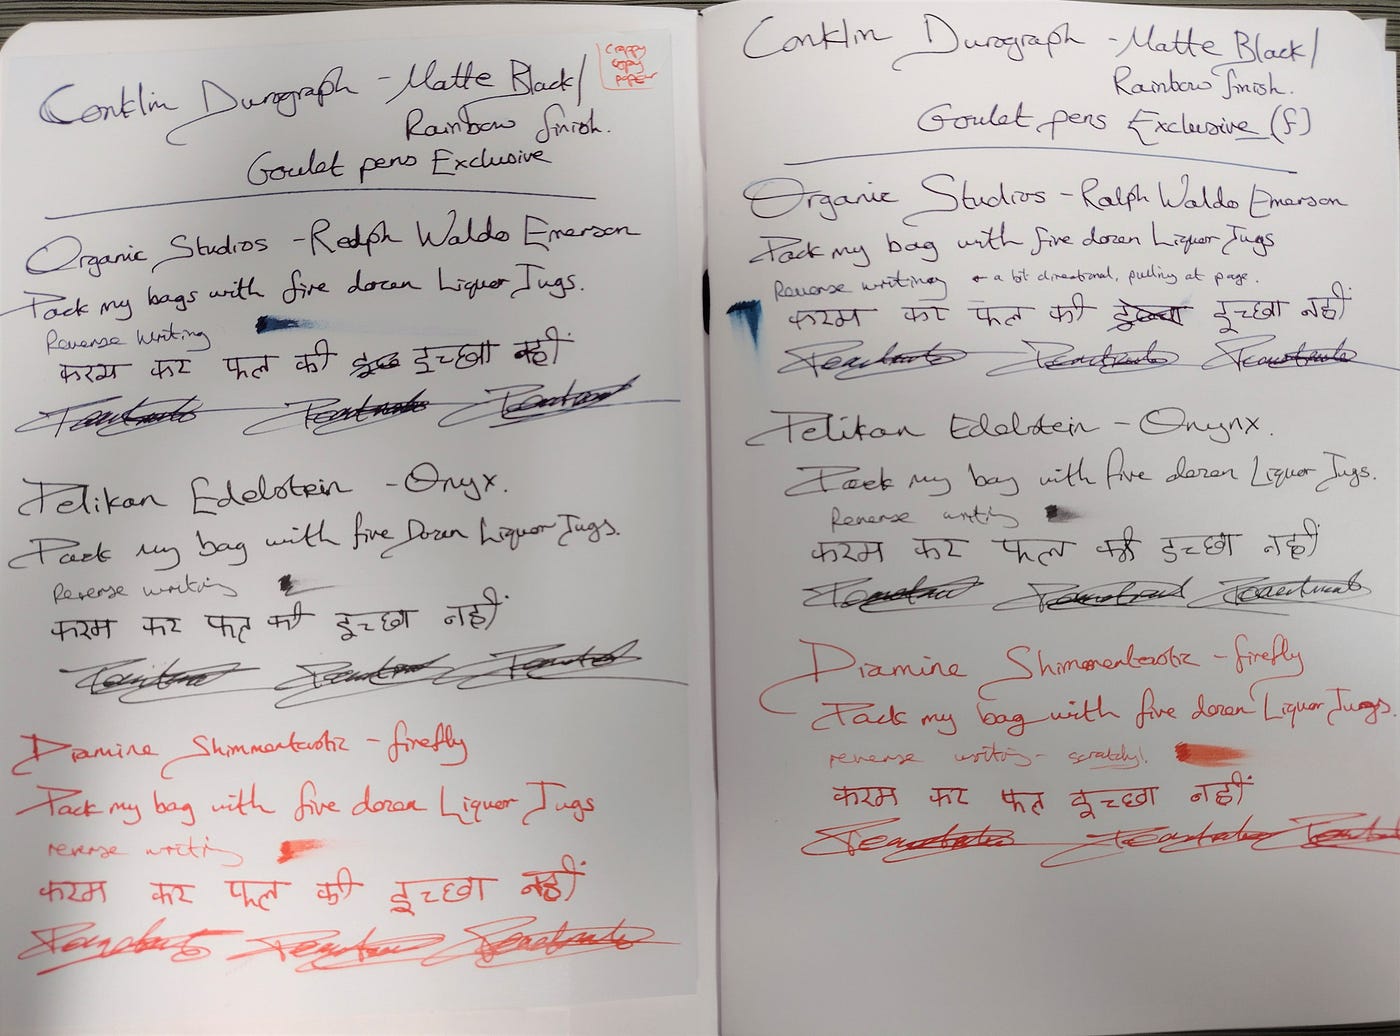 Crappy
copy
paper
Conklin Durograph - Matte Black/
Rainbow finish.
Goulet pens Exclusive
Organic Studios - Ralph Waldo Emerson
Pack my bags with five dozen Liquor Jugs.
Reverse Writing
करम कर फल की इच्छा नहीं
Pelikan Edelstein - Onyx.
Pack my bag with five Dozen Liquor Jugs.
Reverse writing
करम कर फल की इच्छा नहीं
Diamine Shimmertastic - firefly
Pack my bag with five dozen Liquor Jugs
reverse writing
करम कर फल की इच्छा नहीं
Conklin Durograph - Matte Black/
Rainbow finish.
Goulet pens Exclusive (f)
Organic Studios - Ralph Waldo Emerson
Pack my bag with five dozen Liquor Jugs
Reverse writing ← a bit directional, pulling at page.
करम कर फल की इच्छा नहीं
Pelikan Edelstein - Onynx.
Pack my bag with five dozen Liquor Jugs.
Reverse writing
करम कर फल की इच्छा नहीं
Diamine Shimmertastic - firefly
Pack my bag with five dozen Liquor Jugs.
reverse writing - scratchy!
करम कर फल इच्छा नहीं